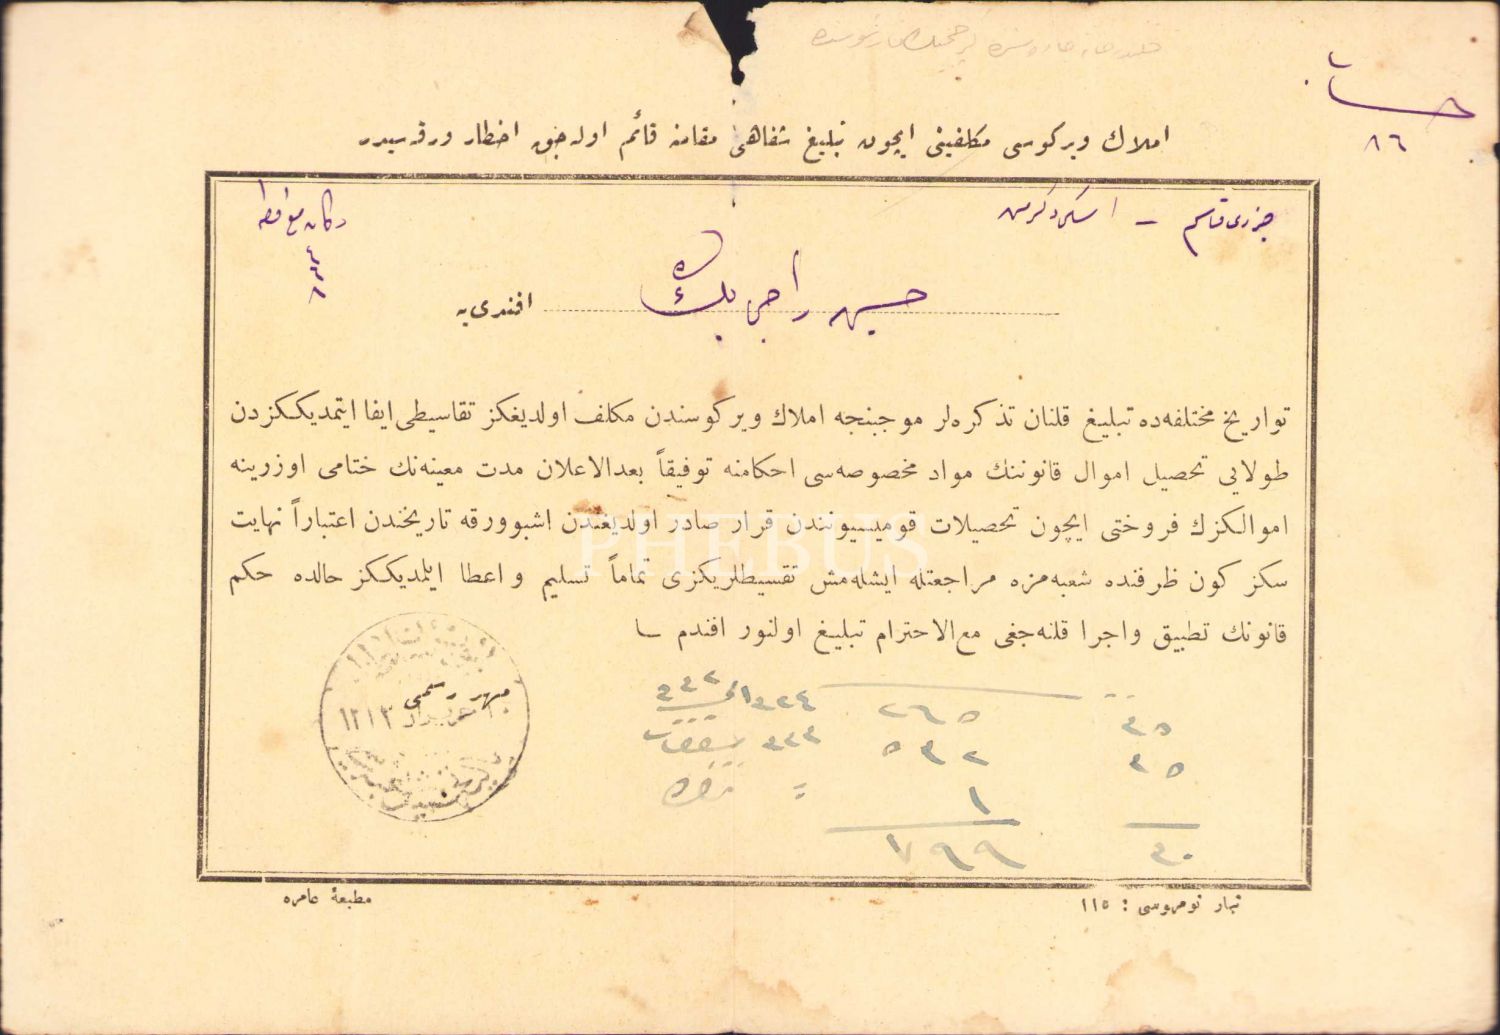 حساب
٨٦
املاك ويركوسى مكلفينى ايچون تبليغ شفاهى مقامنه قائم اوله‌جق اخطار ورقه‌سيدر
جزرى قاسم –
حسين راجى بك
افندى يه
تواريخ مختلفه‌ده تبليغ قلنان تذكره‌لر موجبنجه املاك ويركوسندن مكلف اولديغكز تقاسيطى ايفا ايتمديككزدن
طولايى تحصيل اموال قانوننك مواد مخصوصه‌سى احكامنه توفيقاً بعدالاعلان مدت معينه‌نك ختامى اوزرينه
اموالكزك فروختى ايچون تحصيلات قوميسيونندن قرار صادر اولديغندن اشبو ورقه تاريخندن اعتباراً نهايت
سكز كون ظرفنده شعبه‌مزه مراجعتله ايشله‌مش تقسيطلريكزى تماماً تسليم و اعطا ايلمديككز حالده حكم
قانونك تطبيق و اجرا قلنه‌جغى مع‌الاحترام تبليغ اولنور افندم
PHEBUS
مهر رسمى
٢٦٥
٣٥
٥٣٢
٣٥
١
٧٩٩
مطبعۀ عامره
تجار نومروسى : ١١٥